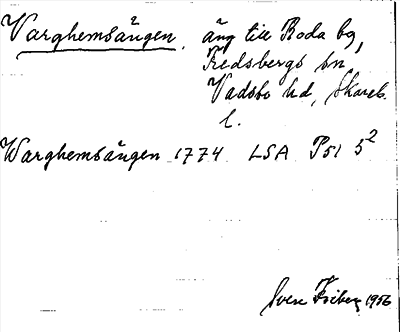 Varghemsängen, äng till Boda by,
Fredsbergs sn
Vadsbo hd, Skarab.
l.
Warghemsängen 1774 LSA P51 5²
Sven Friberg 1956